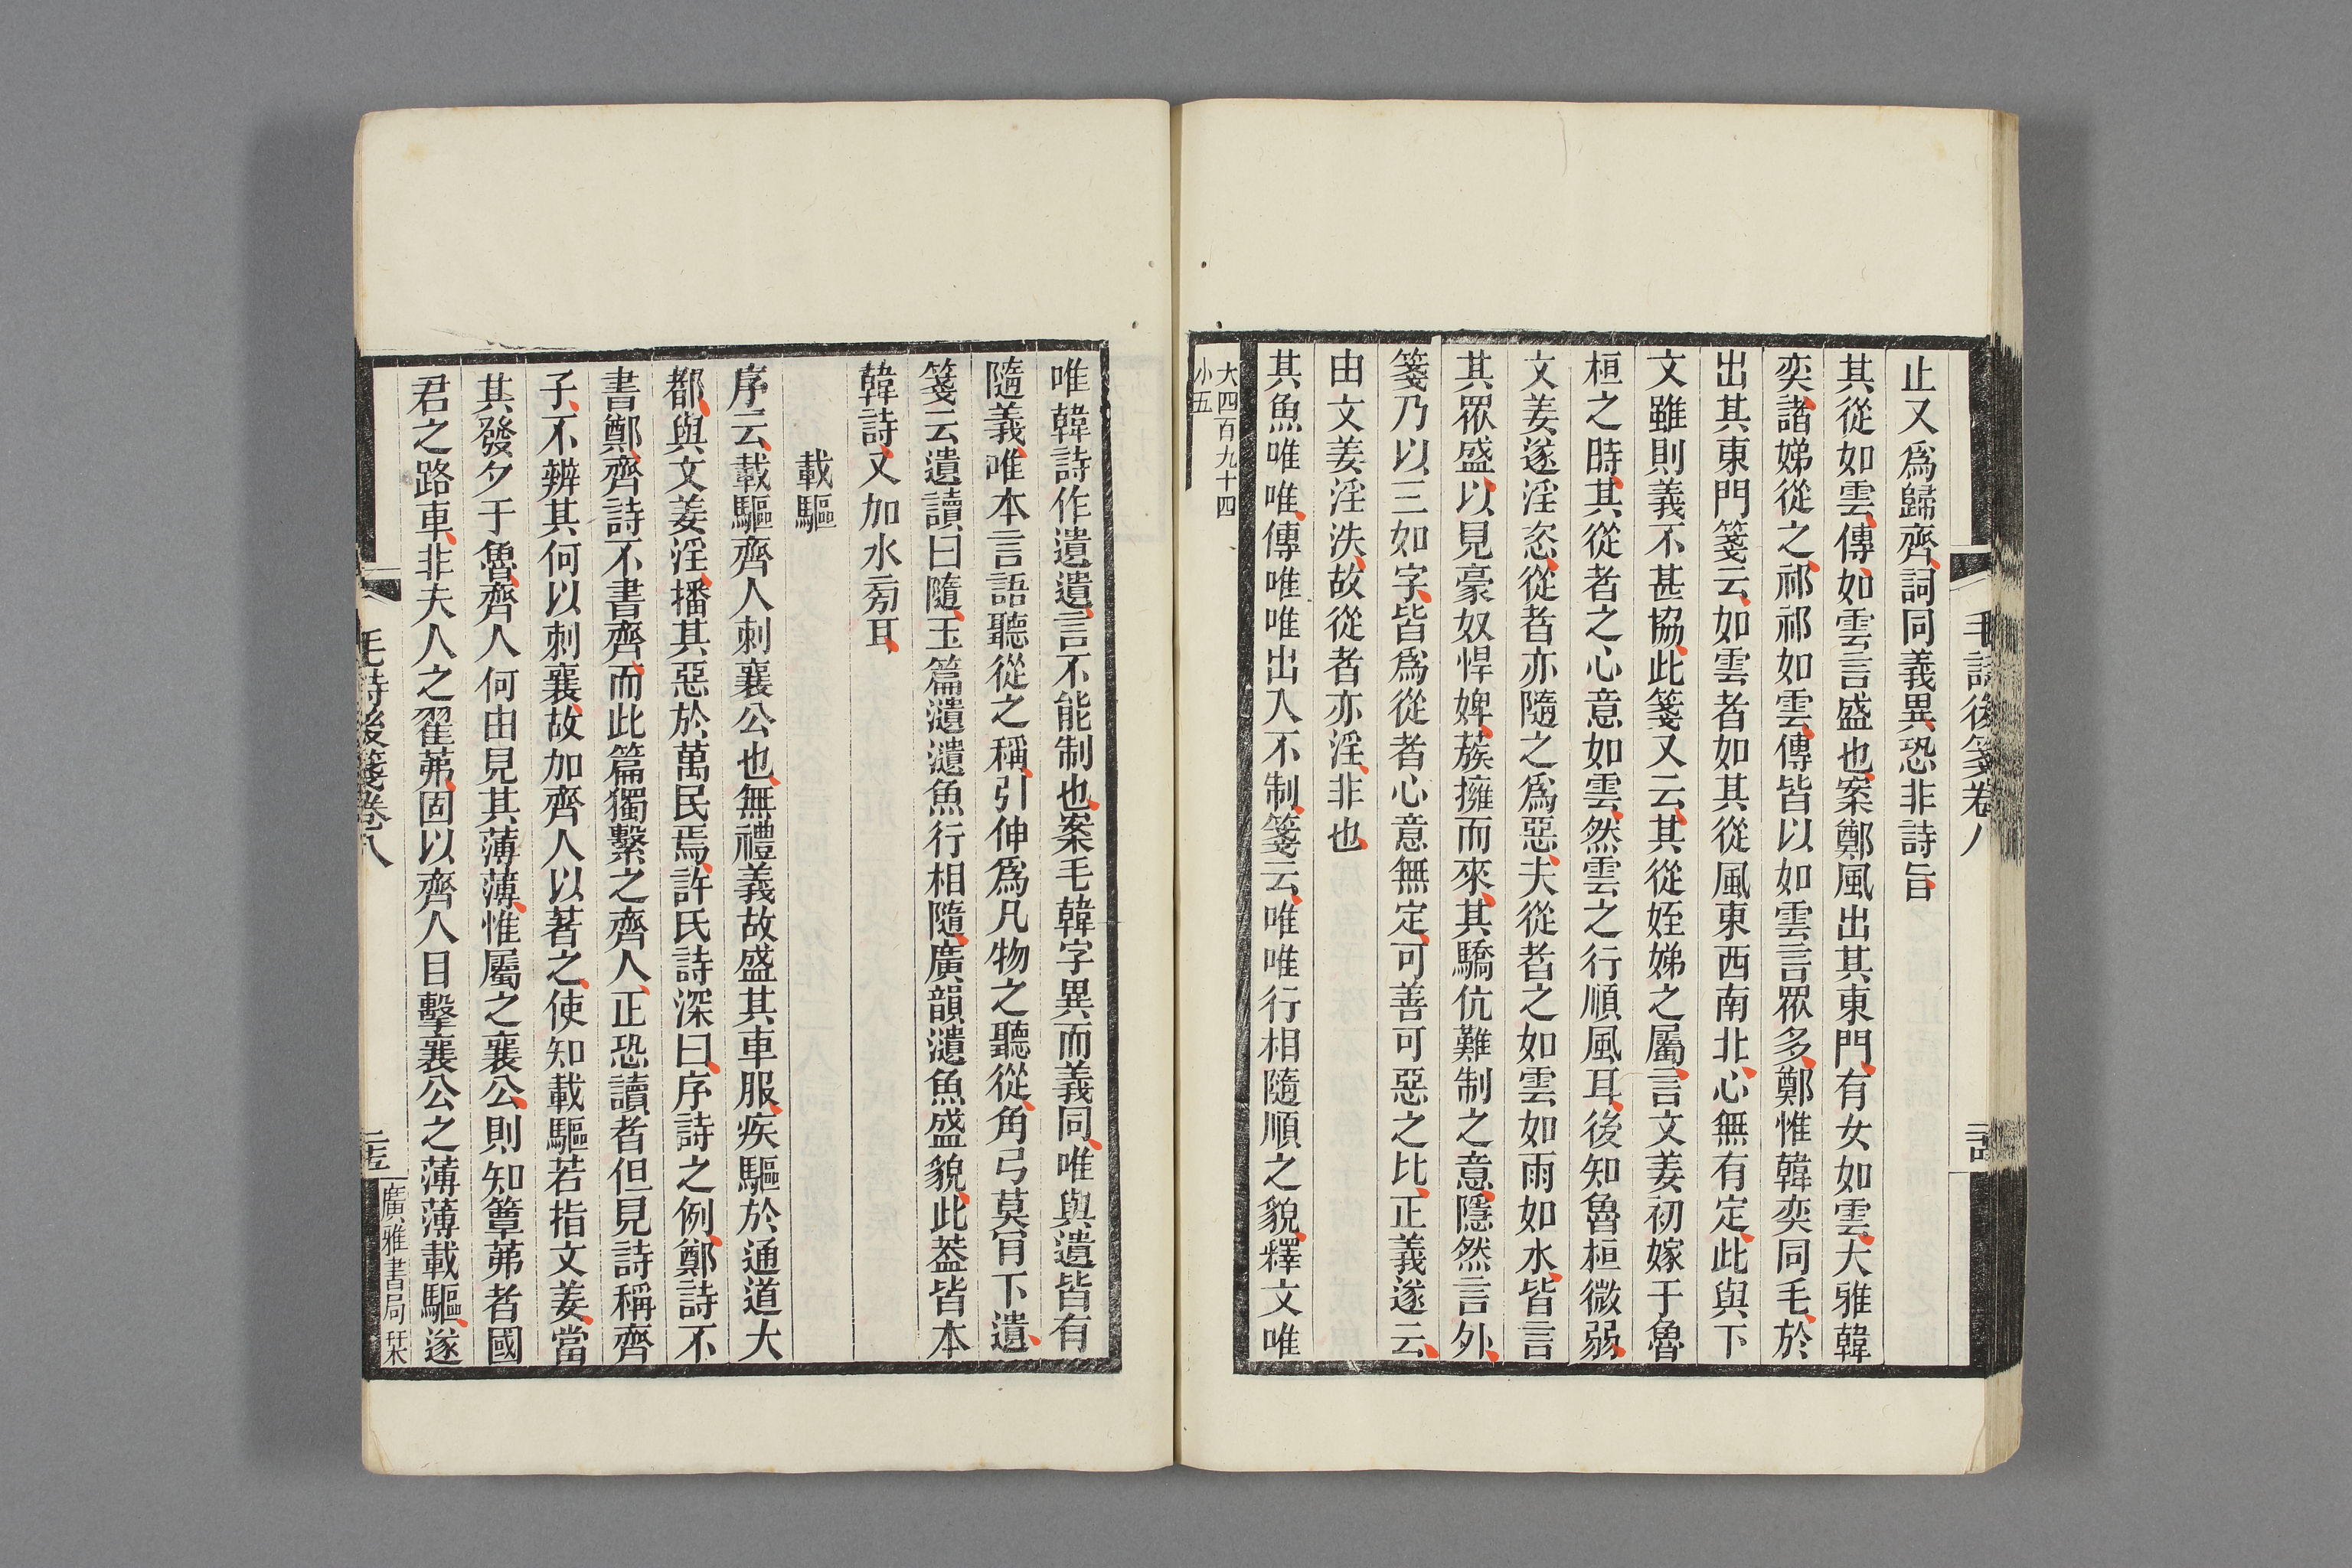 毛詩後箋卷八
止又爲歸齊詞同義異恐非詩旨
其從如雲傳如雲言盛也案鄭風出其東門有女如雲大雅韓
奕諸娣從之祁祁如雲傳皆以如雲言眾多鄭惟韓奕同毛於
出其東門箋云如雲者如其從風東西南北心無有定此與下
文雖則義不甚協此箋又云其從姪娣之屬言文姜初嫁于魯
桓之時其從者之心意如雲然雲之行順風耳後知魯桓微弱
文姜遂淫恣從者亦隨之爲惡夫從者之如雲如雨如水皆言
其眾盛以見豪奴悍婢蔟擁而來其驕伉難制之意隱然言外
箋乃以三如字皆爲從者心意無定可善可惡之比正義遂云
由文姜淫泆故從者亦淫非也
其魚唯唯傳唯唯出入不制箋云唯唯行相隨順之貌釋文唯
大四百九十四
小五
唯韓詩作遺遺言不能制也案毛韓字異而義同唯與遺皆有
隨義唯本言語聽從之稱引伸爲凡物之聽從角弓莫肎下遺
箋云遺讀曰隨玉篇瀢瀢魚行相隨廣韻瀢魚盛貌此葢皆本
韓詩又加水旁耳
載驅
序云載驅齊人刺襄公也無禮義故盛其車服疾驅於通道大
都與文姜淫播其惡於萬民焉許氏詩深曰序詩之例鄭詩不
書鄭齊詩不書齊而此篇獨繫之齊人正恐讀者但見詩稱齊
子不辨其何以刺襄故加齊人以著之使知載驅若指文姜當
其發夕于魯齊人何由見其薄薄惟屬之襄公則知簟茀者國
君之路車非夫人之翟茀固以齊人目擊襄公之薄薄載驅遂
毛詩後箋卷八
廣雅書局栞